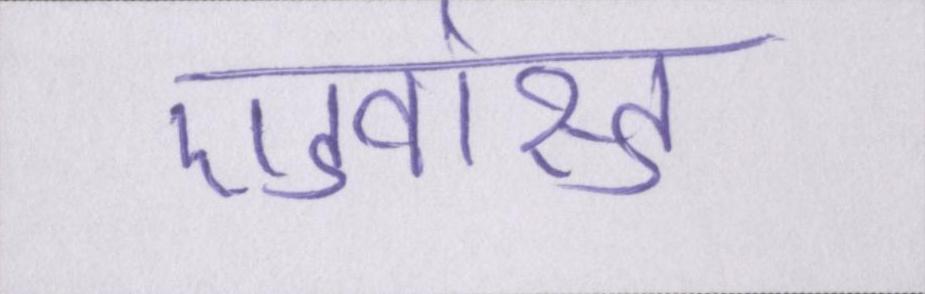 एडवांस्ड